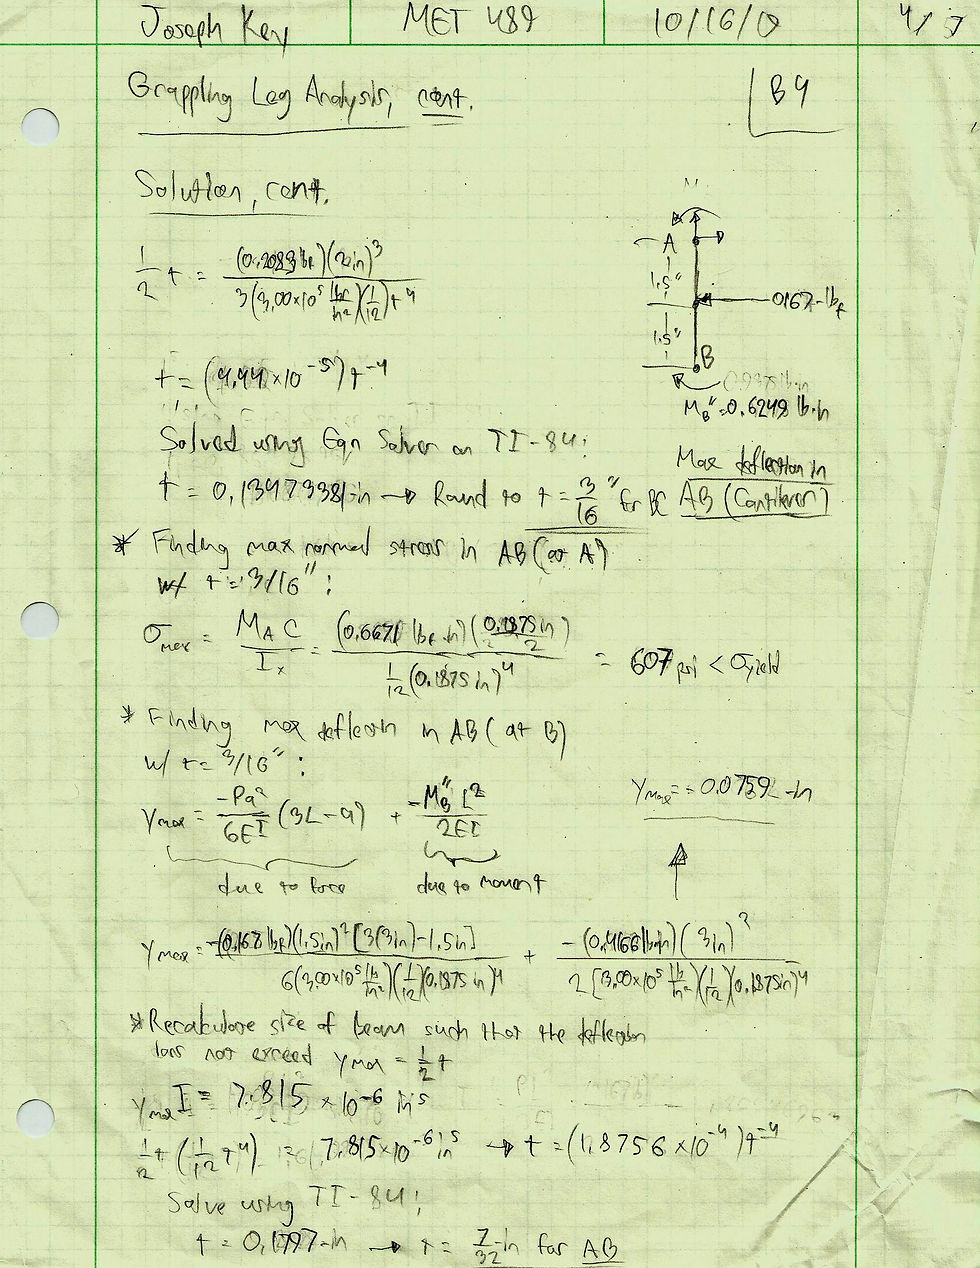 Joseph Key MET 489 10/16/10 4/5
Grappling Leg Analysis, cont.
B4
Solution, cont.
1/2 t = (0.2083 lbf)(2in)^3 / 3(3.00×10^5 lbf/in^2)(1/12)t^4
A
1.5"
0.167-lbf
1.5"
B
t = (4.44×10^-5)t^-4
M_B" = 0.6248 lb·in
Solved using Eqn Solver on TI-84:
Max deflection in
AB (Cantilever)
t = 0.13473381-in → Round to t = 3/16" for BC
* Finding max normal stress in AB (at A)
w/ t = 3/16":
σmax = M_A C / I_x = (0.6671 lbf·in)(0.1875in/2) / 1/12(0.1875in)^4 = 607 psi < σyield
* Finding max deflection in AB (at B)
w/ t = 3/16":
Ymax = -Pa^2/6EI (3L-a) + -M_B" L^2/2EI
Ymax = -0.0759-in
due to force due to moment
Ymax = -(0.167 lbf)(1.5in)^2[3(3in)-1.5in] / 6(3.00×10^5 lb/in^2)(1/12)(0.1875in)^4 + -(0.4166 lb·in)(3in)^2 / 2[3.00×10^5 lb/in^2](1/12)(0.1875in)^4
*Recalculate size of beam such that the deflection
does not exceed Ymax = 1/2 t
Ymax I = 7.815 × 10^-6 in^5
1/2 t (1/12 t^4) = 7.815×10^-6 in^5 → t = (1.8756×10^-4)t^-4
Solve using TI-84:
t = 0.1797-in → t = 7/32-in for AB